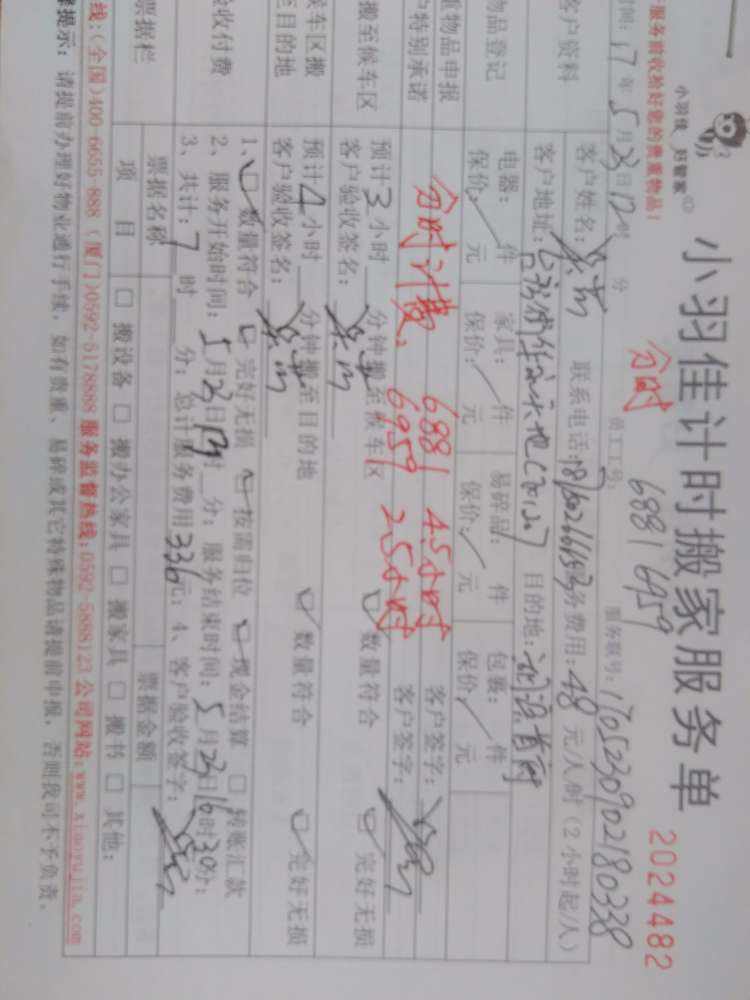 小羽佳 好管家
小羽佳计时搬家服务单
2024482
服务前收拾好您的贵重物品!
分时
6881 6959
员工工号:
服务账号: 170523090218033
时间: 17年5月23日12时 分
客户资料
客户姓名: 联系电话: 服务费用: 48 元/人/时 (2小时起/人)
客户地址: 目的地:
物品登记
电器: 件 家具: 件 易碎品: 件 包裹: 件
保价: 元 保价: 元 保价: 元 保价: 元
重物品申报
户特别承诺
分时计费: 6881 4.5小时 客户签字:
6959 2.5小时 客户签字:
搬至候车区
预计3小时 分钟搬至候车区 数量符合 完好无损
客户验收签名:
候车区搬
至目的地
预计4小时 分钟搬至目的地 数量符合 完好无损
客户验收签名:
验收付费
1、 数量符合 完好无损 按需归位 现金结算 转账汇款
2、服务开始时间: 5月23日 时 分; 服务结束时间: 5月23日16时30分;
3、共计: 7 时 分; 总计服务费用336元; 4、客户验收签字:
票据栏
票据名称 票据金额
项 目 搬设备 搬办公家具 搬家具 搬书 其他:
线:(全国)400-6655-888 (厦门)0592-5178888 服务监督热线:0592-5888123 公司网站:www.xiaoyujia.com
提示: 请提前办理好物业通行手续, 如有贵重、易碎或其它特殊物品请提前申报, 否则我司不予负责。